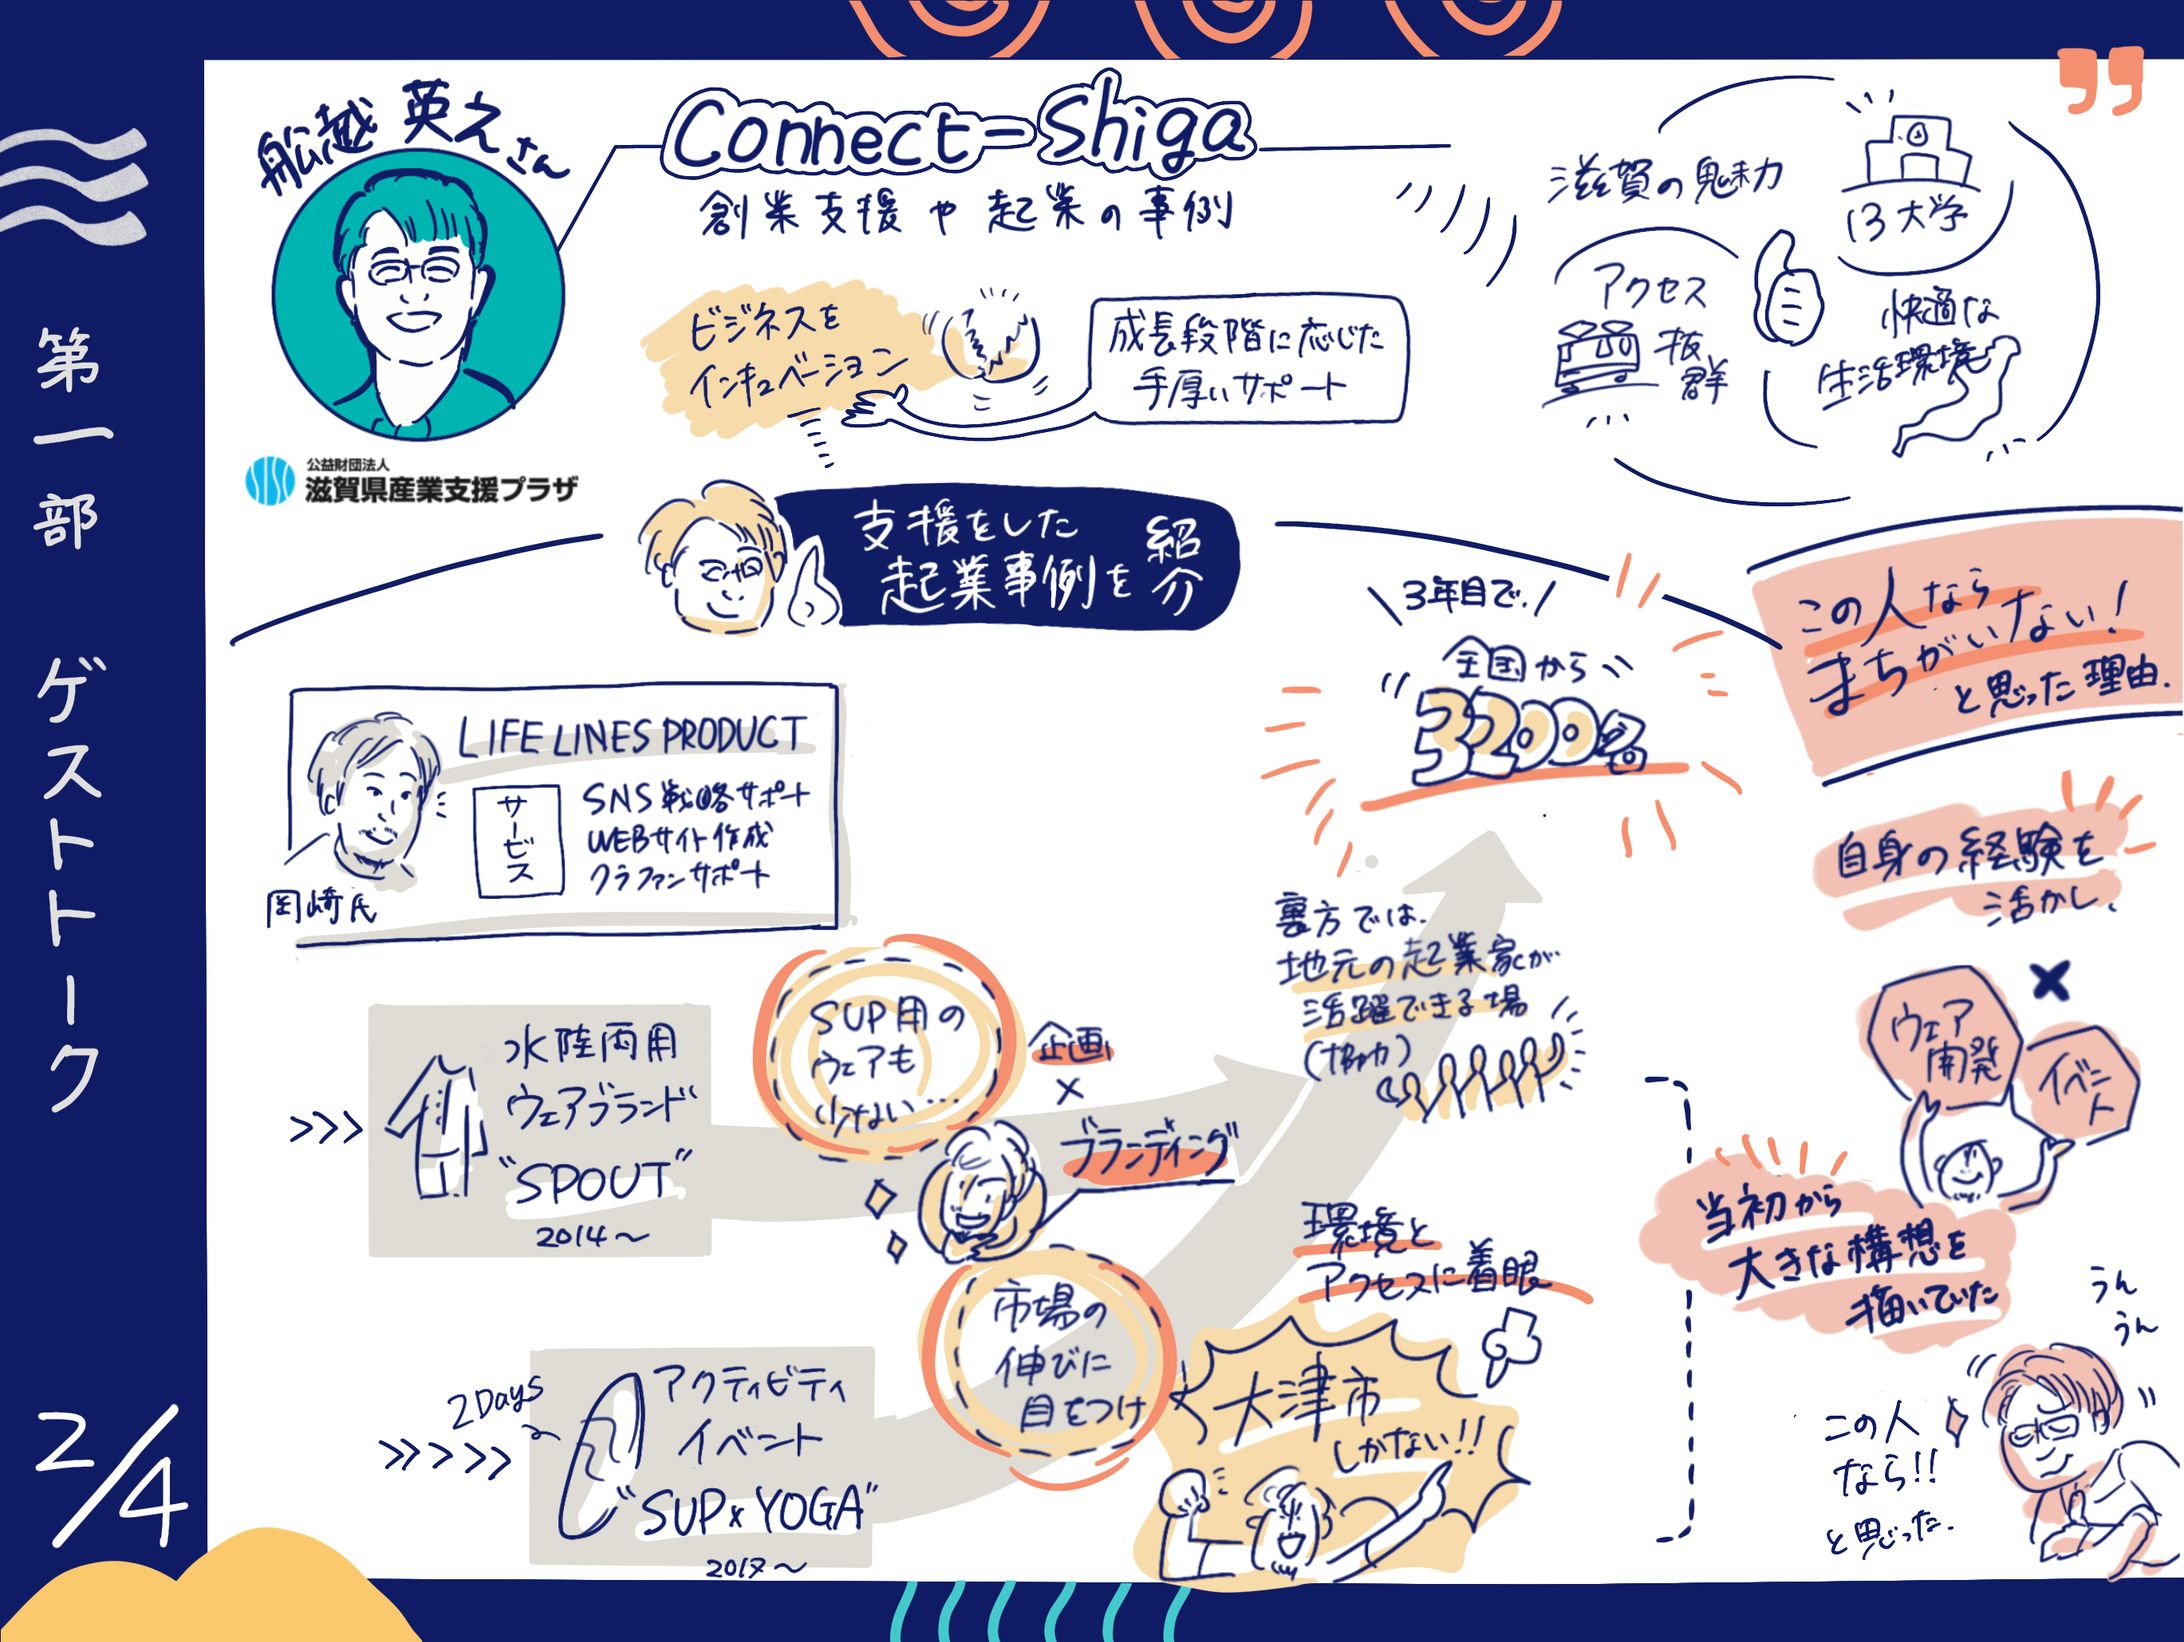 第一部 ゲストトーク
2/4
船越 英えさん
公益財団法人
滋賀県産業支援プラザ
Connect-Shiga
創業支援や起業の事例
ビジネスを
インキュベーション
成長段階に応じた
手厚いサポート
滋賀の魅力
13大学
アクセス
抜群
快適な
生活環境
支援をした
起業事例を
紹介
LIFE LINES PRODUCT
サービス
SNS戦略サポート
WEBサイト作成
クラファンサポート
岡崎氏
水陸両用
ウェアブランド
"SPOUT"
2014〜
SUP用の
ウェアも
少ない…
企画
×
ブランディング
2Days
アクティビティ
イベント
"SUP×YOGA"
2017〜
市場の
伸びに
目をつけ
環境と
アクセスに着眼
大津市
しかない!!
裏方では、
地元の起業家が
活躍できる場
(協力)
3年目で、
全国から
3200名
この人なら
まちがいない!
と思った理由.
自身の経験を
活かし、
ウェア
開発
×
イベント
当初から
大きな構想を
描いていた
うん
うん
この人
なら!!
と思った.